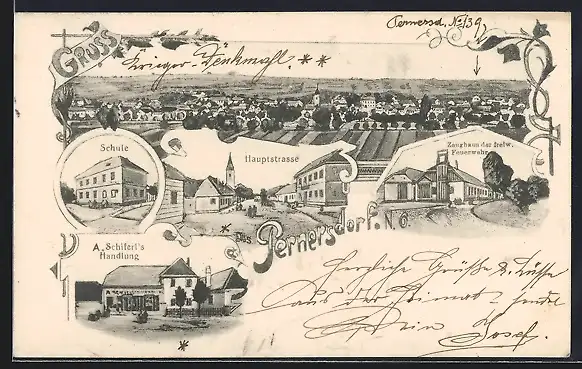 Pernersd. No 139
GRUSS
Krieger-Denkmahl. **
Schule
Hauptstrasse
Zeughaus der freiw.
Feuerwehr
*
aus
Pernersdorf. N.Ö.
A. Schiferl's
Handlung
Herzliche Grüße & Küsse
aus der Heimat sendet
Dein Josef.
*